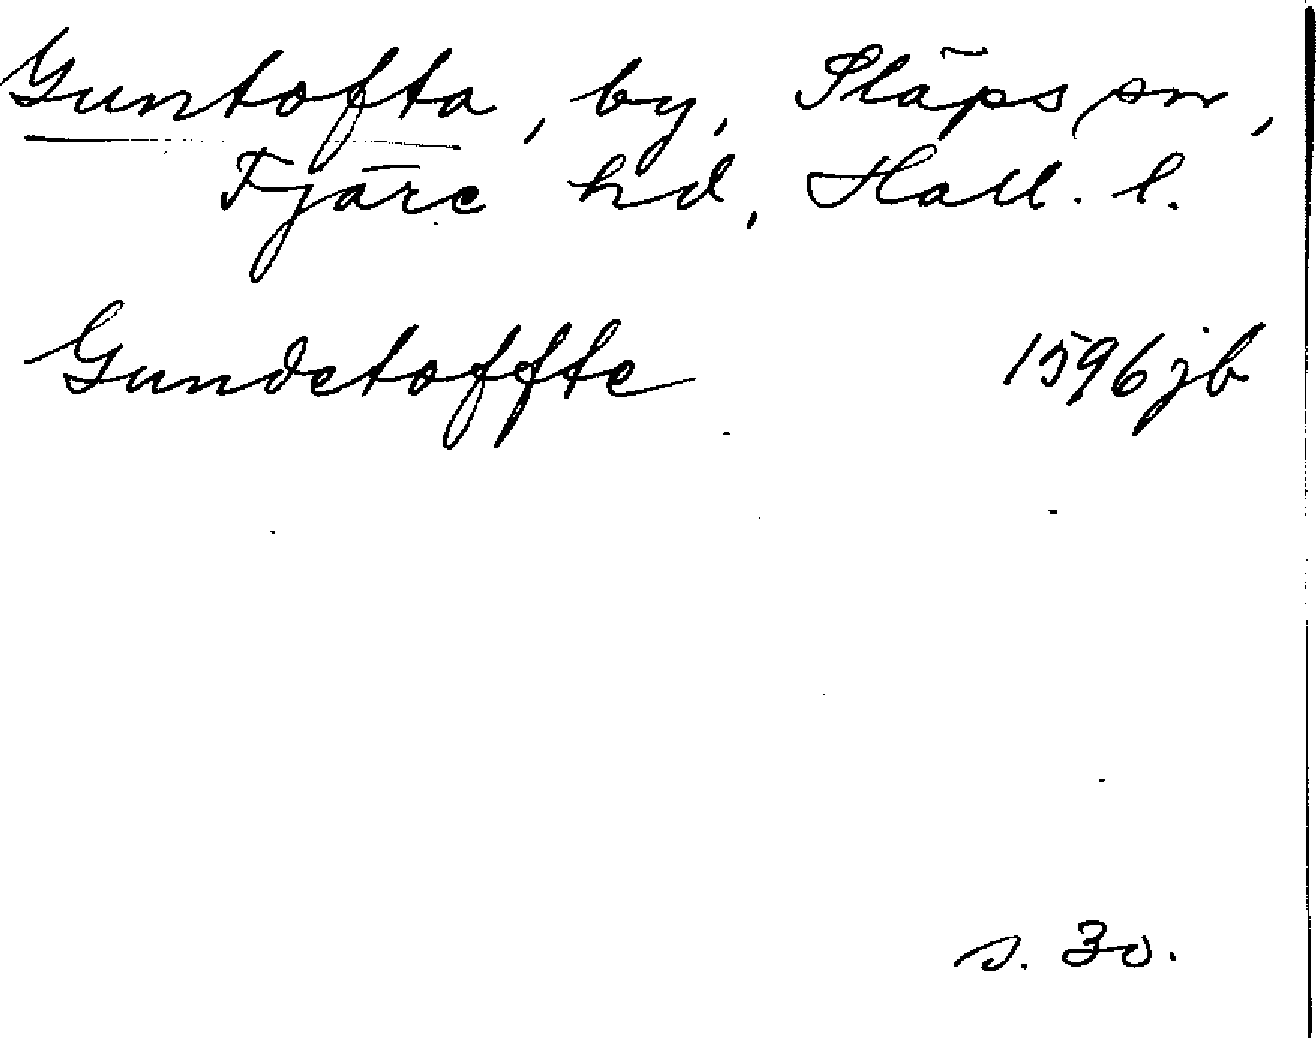 Guntofta, by, Släps sn,
Fjäre hd, Hall. l.
Gundetoffte 1596 jb
s. 30.